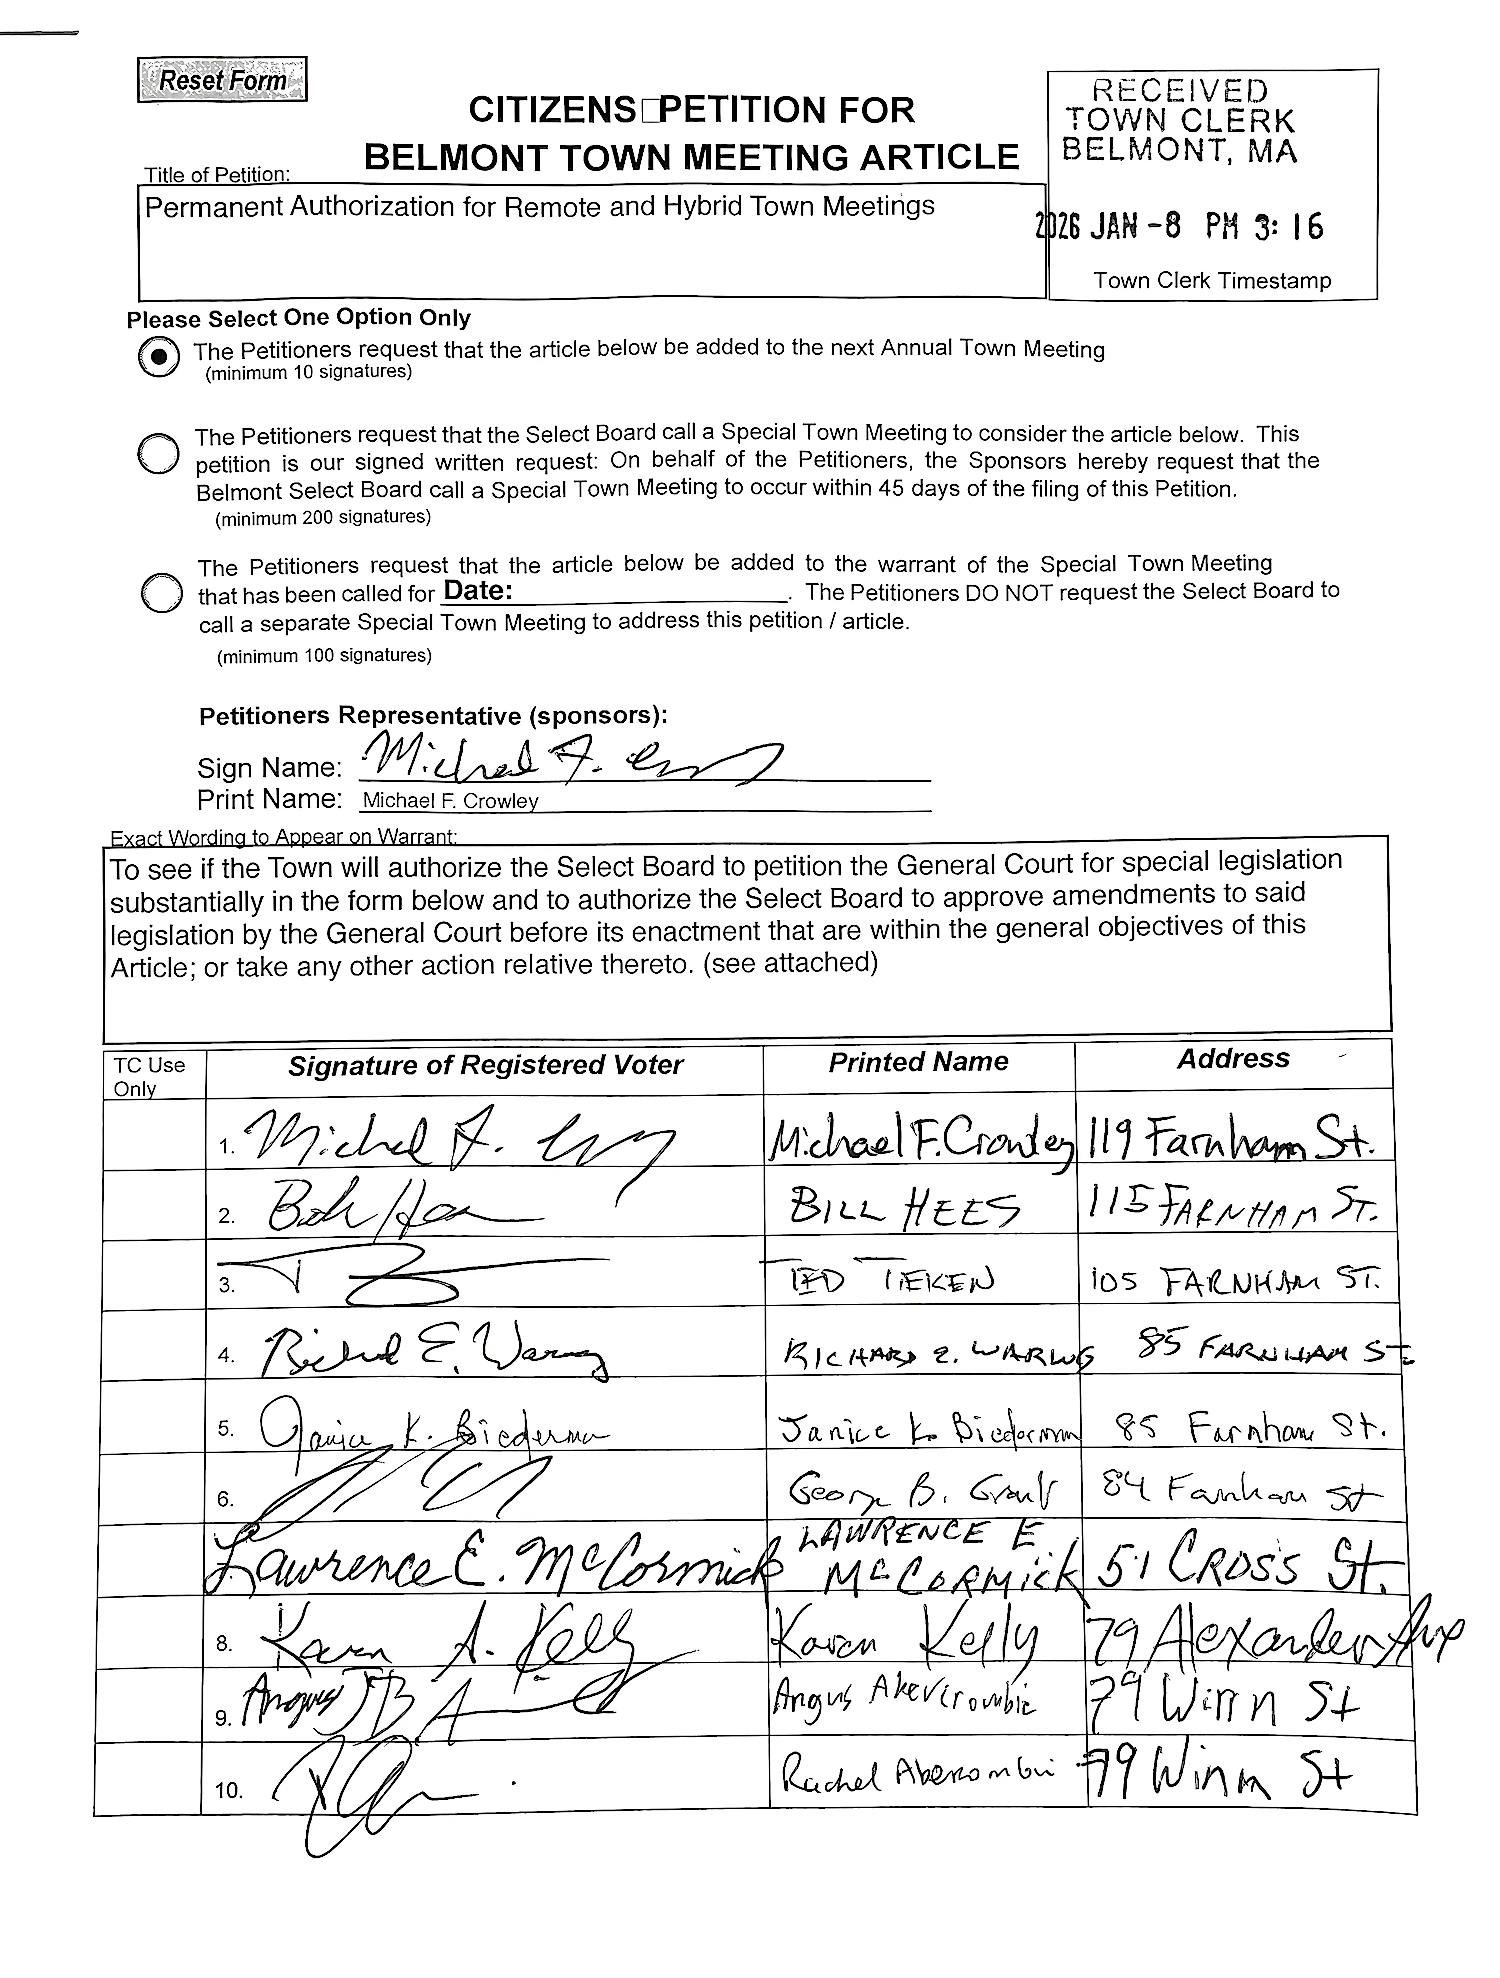 Reset Form
CITIZENS□PETITION FOR
BELMONT TOWN MEETING ARTICLE
RECEIVED
TOWN CLERK
BELMONT, MA
2026 JAN -8 PM 3: 16
Town Clerk Timestamp
Title of Petition:
Permanent Authorization for Remote and Hybrid Town Meetings
Please Select One Option Only
The Petitioners request that the article below be added to the next Annual Town Meeting
(minimum 10 signatures)
The Petitioners request that the Select Board call a Special Town Meeting to consider the article below. This
petition is our signed written request: On behalf of the Petitioners, the Sponsors hereby request that the
Belmont Select Board call a Special Town Meeting to occur within 45 days of the filing of this Petition.
(minimum 200 signatures)
The Petitioners request that the article below be added to the warrant of the Special Town Meeting
that has been called for Date: . The Petitioners DO NOT request the Select Board to
call a separate Special Town Meeting to address this petition / article.
(minimum 100 signatures)
Petitioners Representative (sponsors):
Sign Name: Michael F. Crowley
Print Name: Michael F. Crowley
Exact Wording to Appear on Warrant:
To see if the Town will authorize the Select Board to petition the General Court for special legislation
substantially in the form below and to authorize the Select Board to approve amendments to said
legislation by the General Court before its enactment that are within the general objectives of this
Article; or take any other action relative thereto. (see attached)
TC Use Only Signature of Registered Voter Printed Name Address
1. Michael F. Crowley Michael F. Crowley 119 Farnham St.
2. BILL HEES 115 FARNHAM ST.
3. TED TIEKEN 105 FARNHAM ST.
4. Richard E. Waring RICHARD E. WARING 85 FARNHAM St
5. Janice K. Biederman Janice K. Biederman 85 Farnham St.
6. George B. 84 Farnham St
Lawrence E. McCormick LAWRENCE E McCORMick 51 CROSS St.
8. Karen A. Kelly Karen Kelly 79 Alexander Ave
9. Angus Angus Abercrombie 79 Winn St
10. Rachel Abercrombie 79 Winn St